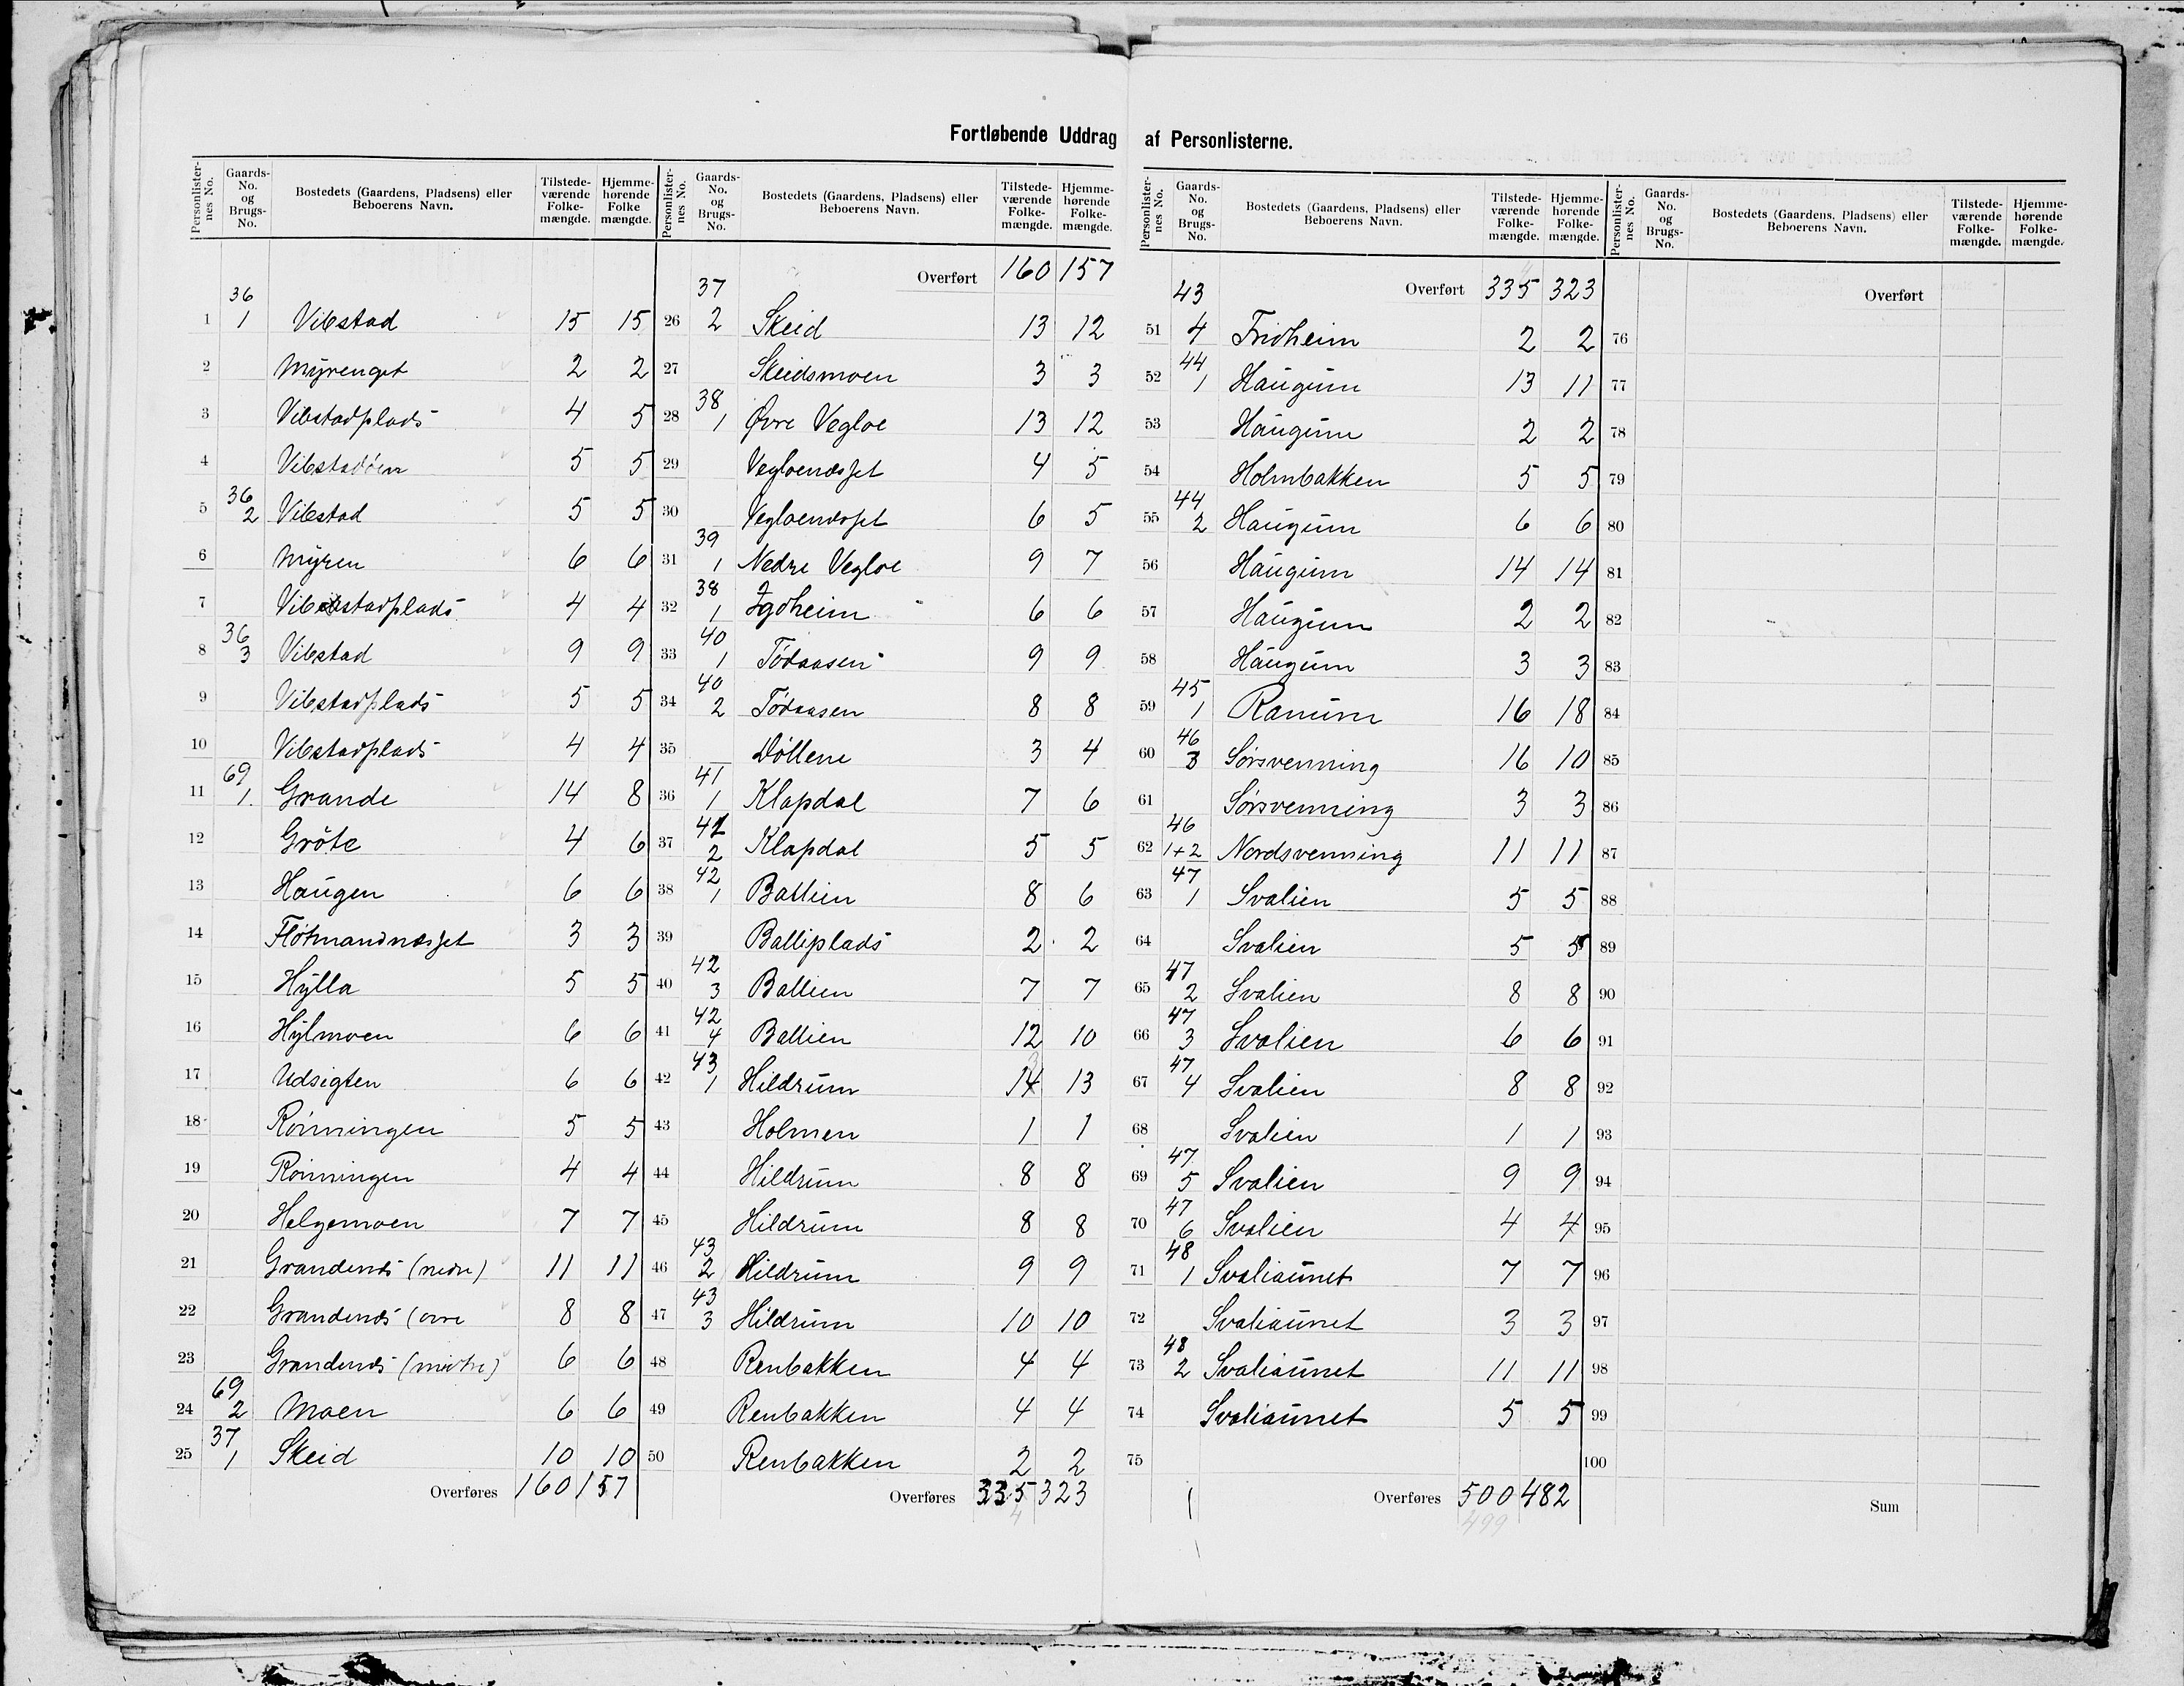 Fortløbende Uddrag af Personlisterne.
Personlister-nes No. | Gaards-No. og Brugs-No. | Bostedets (Gaardens, Pladsens) eller Beboerens Navn. | Tilstede-værende Folke-mængde. | Hjemme-hørende Folke mængde.
36
1 1 Vibstad 15 15
2 Myrenget 2 2
3 Vibstadplads 4 5
4 Vibstadöen 5 5
36
5 2 Vibstad 5 5
6 Myren 6 6
7 Vibstadplads 4 4
36
8 3 Vibstad 9 9
9 Vibstadplads 5 5
10 Vibstadplads 4 4
69
11 1 Grande 14 8
12 Gröte 4 6
13 Haugen 6 6
14 Fløtmandnæsset 3 3
15 Hylla 5 5
16 Hylmoen 6 6
17 Udsigten 6 6
18 Rönningen 5 5
19 Rönningen 4 4
20 Helgemoen 7 7
21 Grandenæs (nedre) 11 11
22 Grandenæs (øvre 8 8
23 Grandenæs (midtre) 6 6
69
24 2 Moen 6 6
37
25 1 Skeid 10 10
Overføres 160 157
Personlister-nes No. | Gaards-No. og Brugs-No. | Bostedets (Gaardens, Pladsens) eller Beboerens Navn. | Tilstede-værende Folke-mængde. | Hjemme-hørende Folke-mængde.
Overført 160 157
37
26 2 Skeid 13 12
27 Skeidsmoen 3 3
38
28 1 Øvre Vegloe 13 12
29 Vegloenæsset 4 5
30 Vegloenæsset 6 5
39
31 1 Nedre Vegloe 9 7
38
32 1 Jgdheim 6 6
40
33 1 Tödaasen 9 9
40
34 2 Tödaasen 8 8
35 Döllene 3 4
41
36 1 Klapdal 7 6
41
37 2 Klapdal 5 5
42
38 1 Ballien 8 6
39 Balliplads 2 2
42
40 3 Ballien 7 7
42
41 4 Ballien 12 10
43 3
42 1 Hildrum 14 13
43 Holmen 1 1
44 Hildrum 8 8
45 Hildrum 8 8
43
46 2 Hildrum 9 9
43
47 3 Hildrum 10 10
48 Renbakken 4 4
49 Renbakken 4 4
50 Renbakken 2 2
Overføres 335 323
4
Personlister-nes No. | Gaards-No. og Brugs-No. | Bostedets (Gaardens, Pladsens) eller Beboerens Navn. | Tilstede-værende Folke-mængde. | Hjemme-hørende Folke-mængde.
43 Overført 335 323
51 4 Fridheim 2 2
44
52 1 Haugum 13 11
53 Haugum 2 2
54 Holmbakken 5 5
44
55 2 Haugum 6 6
56 Haugum 14 14
57 Haugum 2 2
58 Haugum 3 3
45
59 1 Ranum 16 18
46
60 3 Sörsvenning 16 10
61 Sörsvenning 3 3
46
62 1+2 Nordsvenning 11 11
47
63 1 Svalien 5 5
64 Svalien 5 5
47
65 2 Svalien 8 8
47
66 3 Svalien 6 6
47
67 4 Svalien 8 8
68 Svalien 1 1
47
69 5 Svalien 9 9
47
70 6 Svalien 4 4
48
71 1 Svaliaunet 7 7
72 Svaliaunet 3 3
48
73 2 Svaliaunet 11 11
74 Svaliaunet 5 5
75
1 Overføres 500 482
499
Personlister-nes No. | Gaards-No. og Brugs-No. | Bostedets (Gaardens, Pladsens) eller Beboerens Navn. | Tilstede-værende Folke-mængde. | Hjemme-hørende Folke-mængde.
Overført
76
77
78
79
80
81
82
83
84
85
86
87
88
89
90
91
92
93
94
95
96
97
98
99
100
Sum